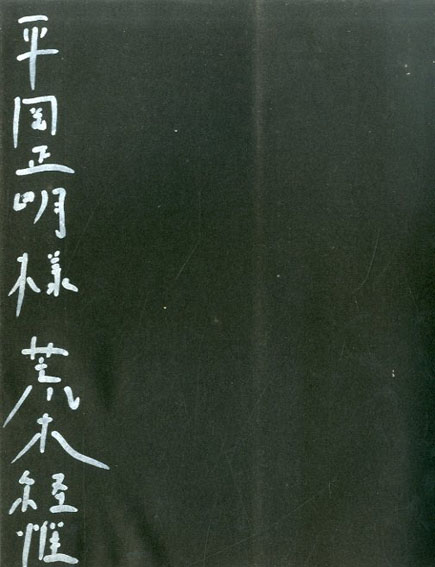 平岡正明様 荒木経惟